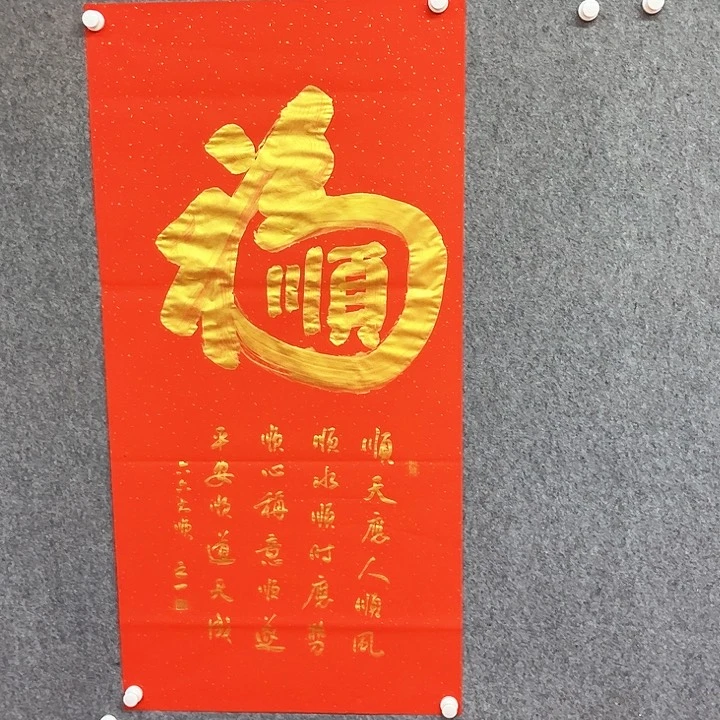 福
順
順天應人順風
順水順时應勢
順心稱意順遂
平安順道天成
六六大順